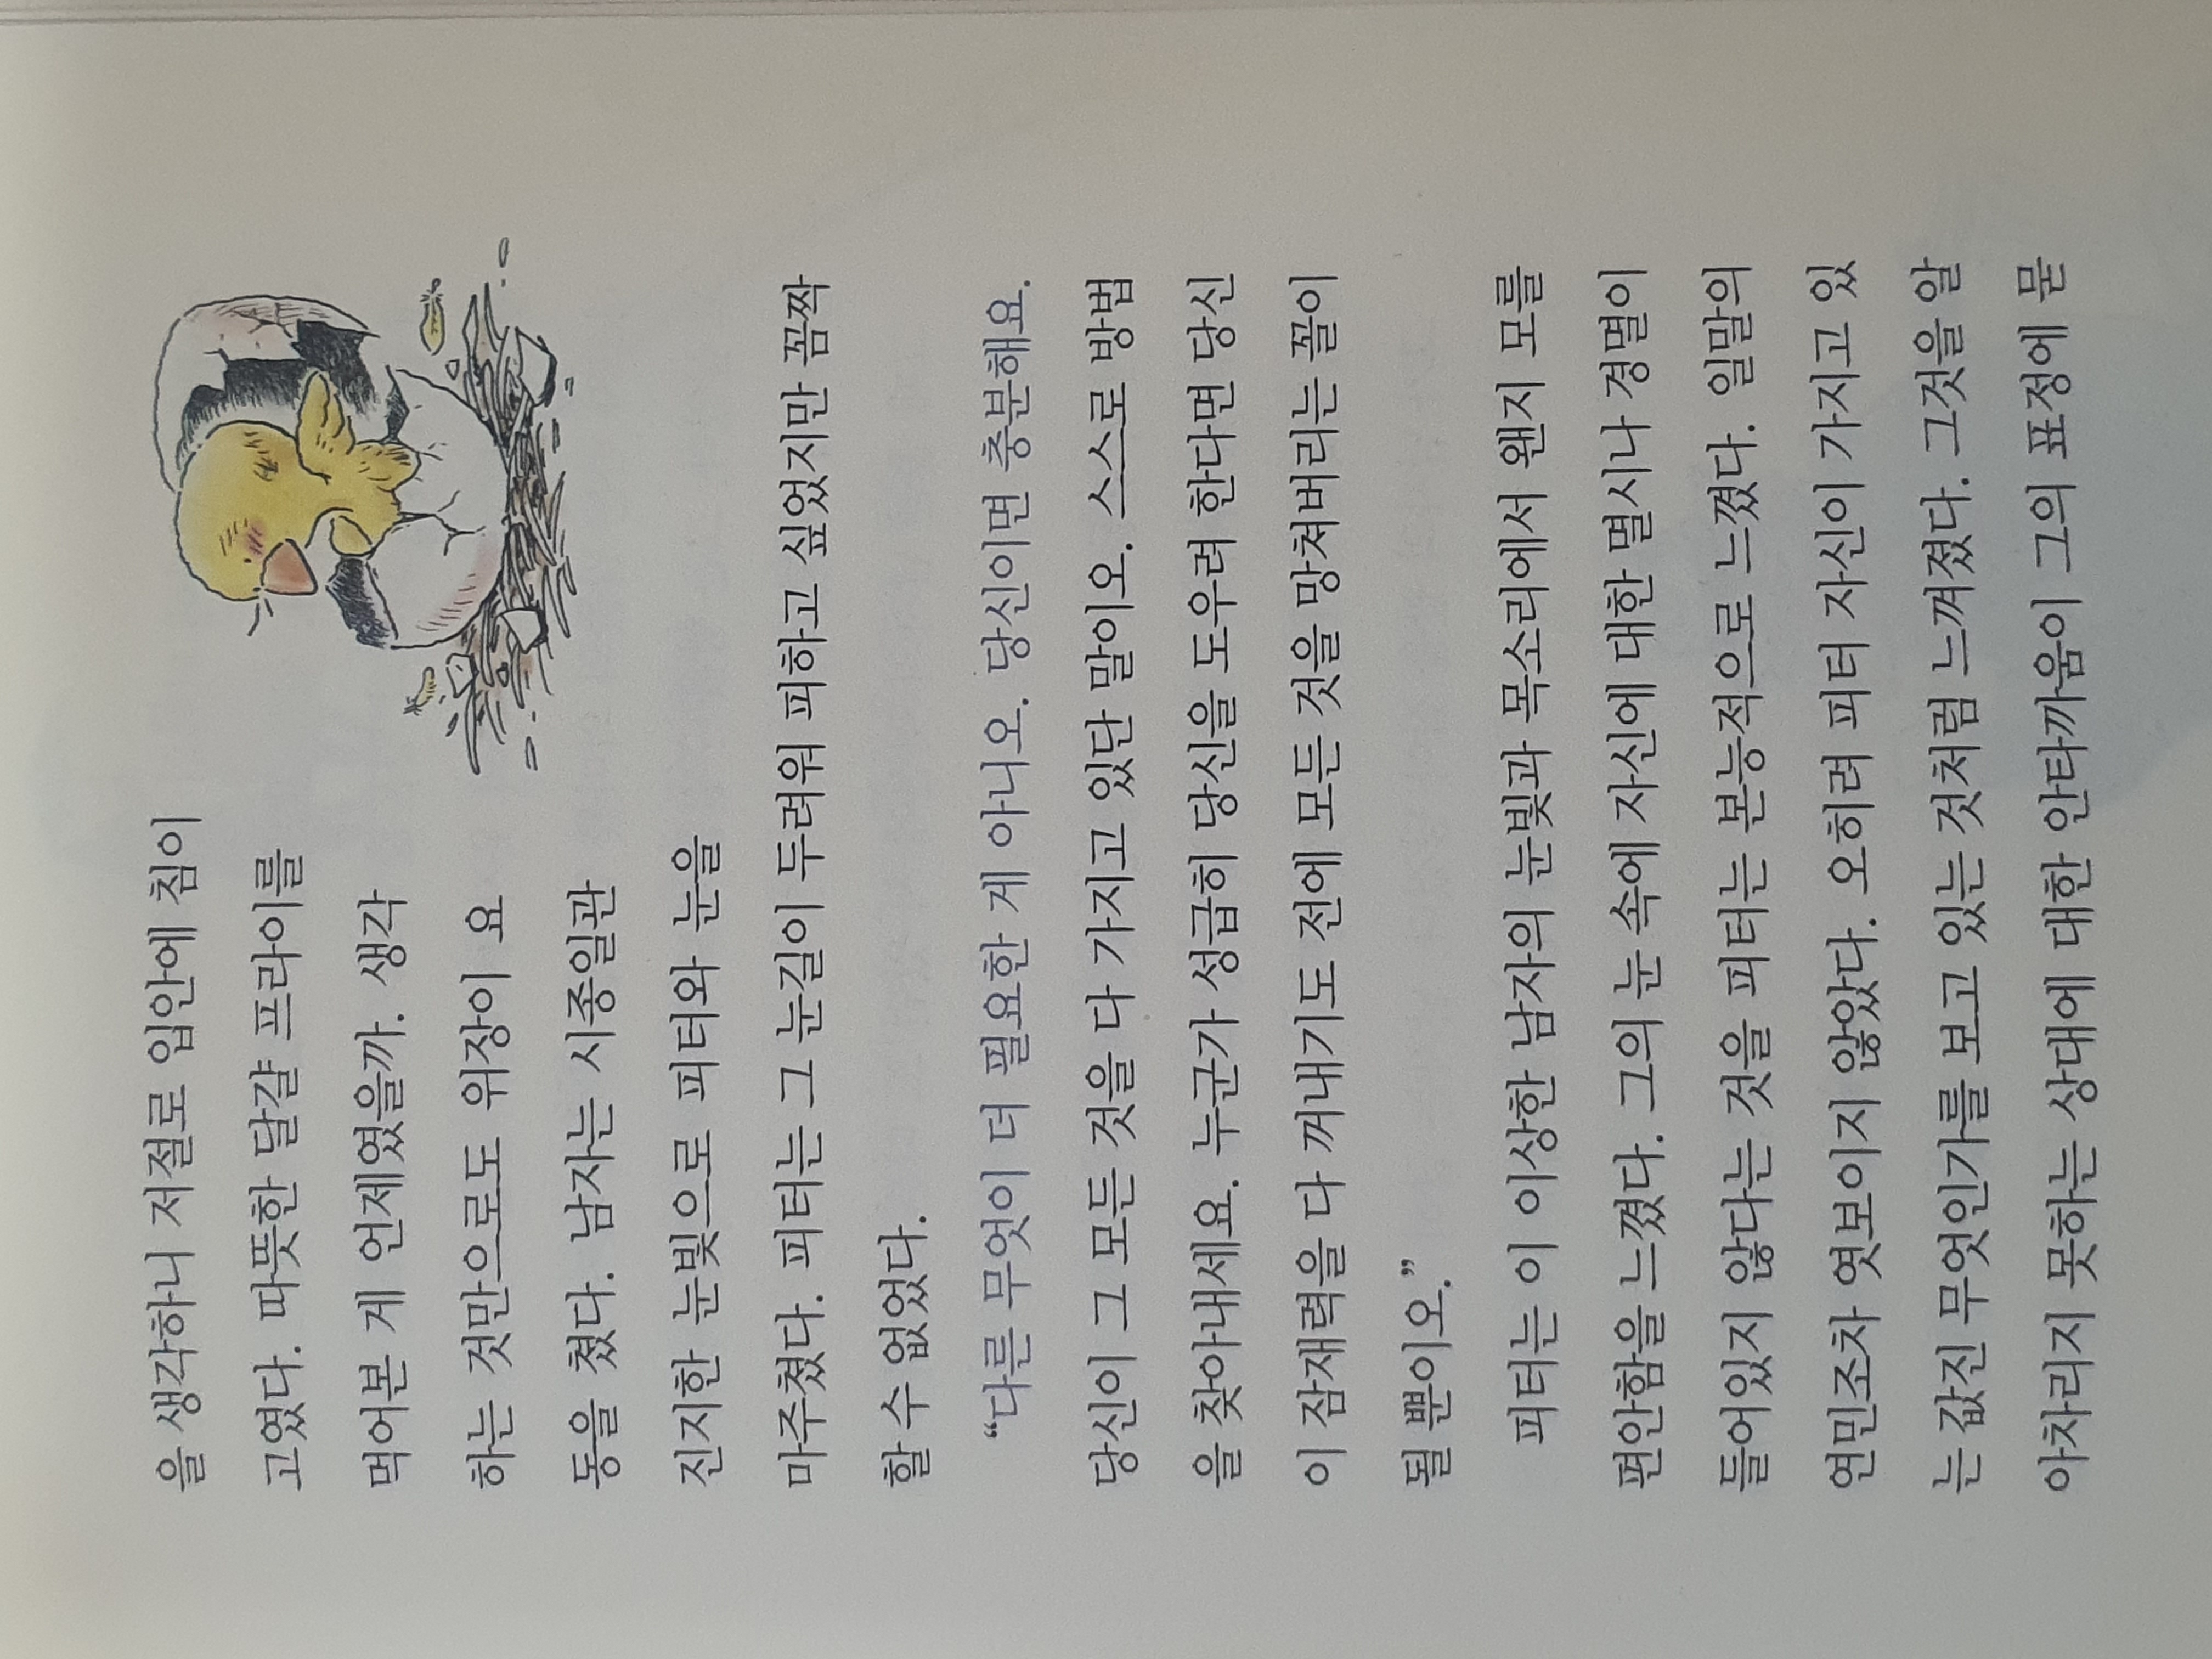 을 생각하니 저절로 입안에 침이
고였다. 따뜻한 달걀 프라이를
먹어본 게 언제였을까. 생각
하는 것만으로도 위장이 요
동을 쳤다. 남자는 시종일관
진지한 눈빛으로 피터와 눈을
마주쳤다. 피터는 그 눈길이 두려워 피하고 싶었지만 꼼짝
할 수 없었다.
“다른 무엇이 더 필요한 게 아니오. 당신이면 충분해요.
당신이 그 모든 것을 다 가지고 있단 말이오. 스스로 방법
을 찾아내세요. 누군가 성급히 당신을 도우려 한다면 당신
이 잠재력을 다 꺼내기도 전에 모든 것을 망쳐버리는 꼴이
될 뿐이오.”
피터는 이 이상한 남자의 눈빛과 목소리에서 왠지 모를
편안함을 느꼈다. 그의 눈 속에 자신에 대한 멸시나 경멸이
들어있지 않다는 것을 피터는 본능적으로 느꼈다. 일말의
연민조차 엿보이지 않았다. 오히려 피터 자신이 가지고 있
는 값진 무엇인가를 보고 있는 것처럼 느껴졌다. 그것을 알
아차리지 못하는 상대에 대한 안타까움이 그의 표정에 묻